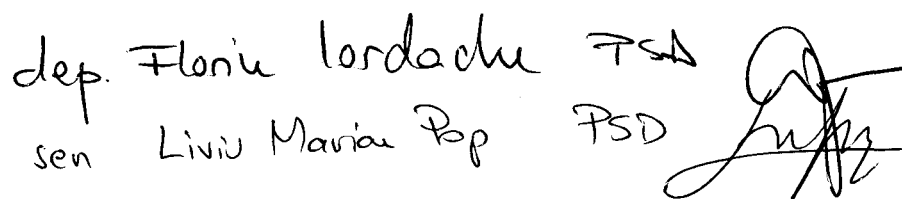 dep. Florin Iordache PSD
sen Liviu Marian Pop PSD